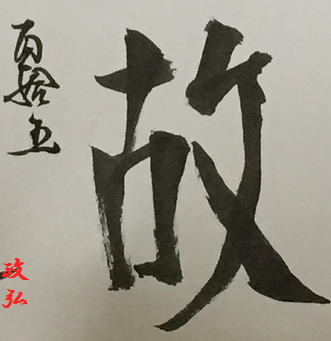 故
百拾五
政弘